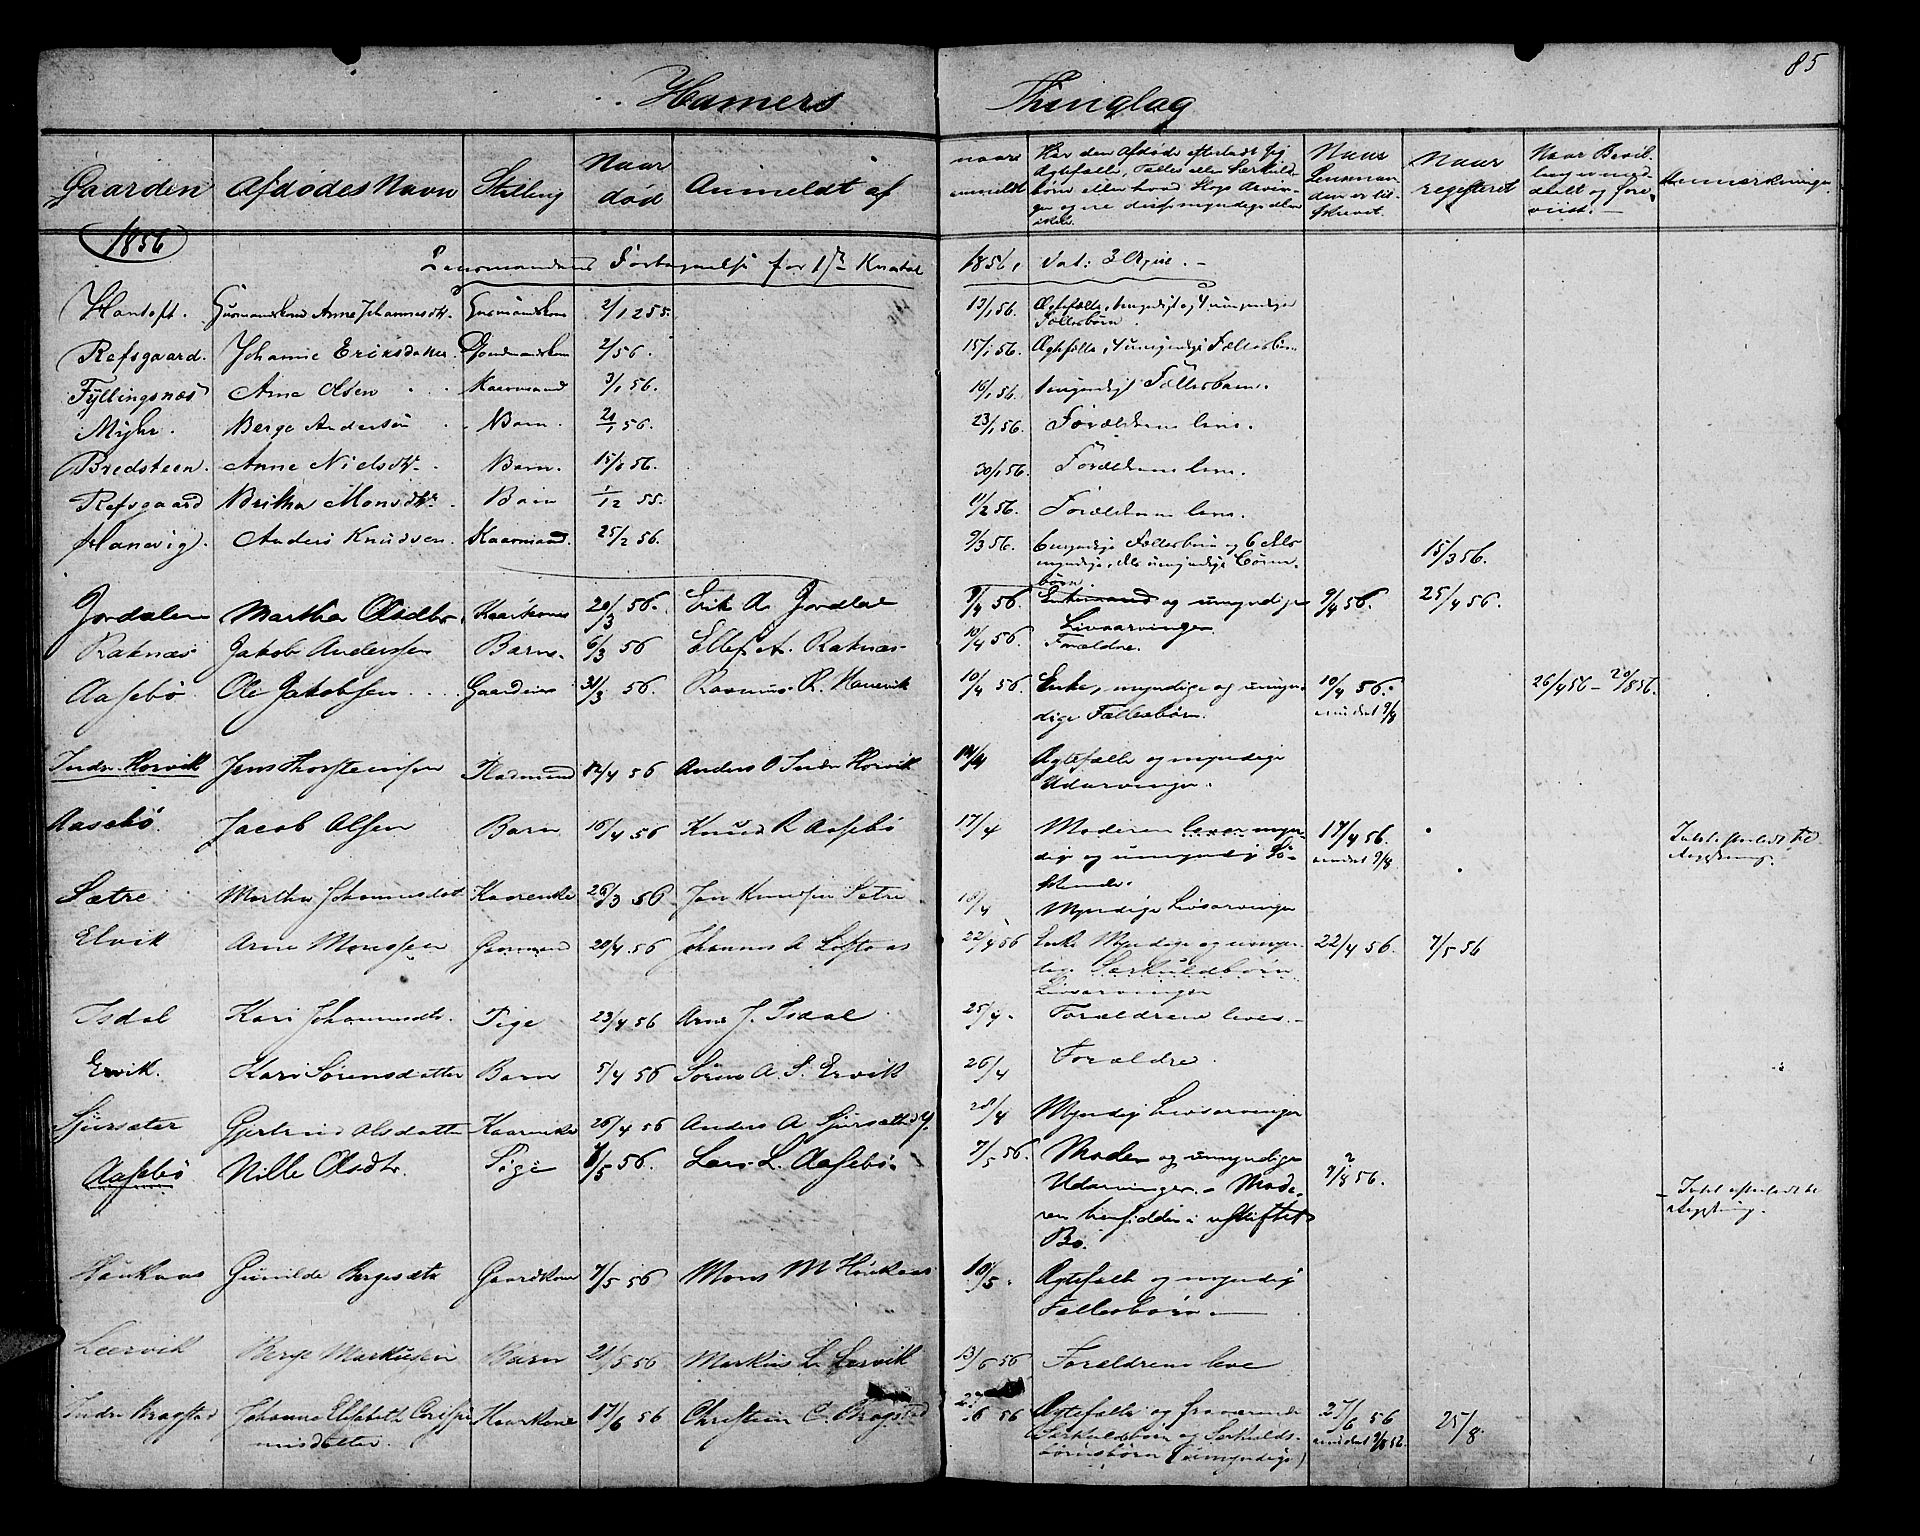 85
Hamers Thinglag
Gaarden Afdødes Navn Stilling Naar død Anmeldt af naar anmeldt Har den Afdøde efterladt sig Ægtefælle, Fælles eller Særkuldbørn eller hvad Slags Arvinger og ere disse myndige eller ikke Naar Lensmanden er tilskrevet. Naar registeret Naar Bevilling er meddeelt og foreviist. Anmærkninger
1856
Lensmandens Fortegnelse for 1ste Kvartal 1856, dat: 3 April.
Hantoft. Huusmandskone Anne Johannesdtr. Huusmandskone 2/12 55. 13/1 56. Ægtefælle, 1 myndigt og 4 umyndige Fællesbørn.
Refsgaard. Johanne Eriksdatter. Gaardmandskone 2/ 56. 15/1 56. Ægtefælle, 4 umyndige Fællesbørn.
Fyllingsnæs Arne Olsen Kaarmand 3/1 56. 16/1 56. 1 myndigt Fællesbarn.
Myhr. Berge Andersen Barn. 2/1 56. 23/1 56. Forældrene leve.
Bredsteen. Anne Nielsdtr. Barn. 15/1 56. 30/1 56. Forældrene leve.
Refsgaard Britha Monsdtr. Barn 1/12 55. 11/2 56. Forældrene leve.
Hanevig. Anders Knudsen. Kaarmand. 25/2 56. 9/3 56. 6 myndige Fællesbørn og 6 dels myndige, dels umyndige Børnebørn. 15/3 56.
Jordalen Martha Olsdtr. Kaarkone 20/3 56. Erik A. Jordal 9/4 56. Enkemand og umyndige Livsarvinger. 9/4 56. 25/4 56.
Raknæs Jakob Andersen Barn. 6/3 56 Ellef A. Raknæs 10/4 56. Forældre.
Aasebø Ole Jakobsen Gaardm. 31/3 56. Rasmus R. Hanevik 10/4 56. Enke, myndige og umyndige Fællesbørn. 10/4 56. mindet 9/8 26/4 56 – 20/8 56.
Indre Horvik Jens Thorsteinsen 12/4 56 Anders O Indre Horvik 14/4 Ægtefælle og myndige Udarvinger.
Aasebø. Jacob Olsen Barn 16/4 56 Knud R Aasebø 17/4 Moderen lever myndig og umyndig Søskende. 17/4 56. mindet 9/8 Intet efterladt til Skiftning.
Sætre Martha Johannesdat Kaarenke 26/3 56 Jon Knudsen Sætre 18/4 Myndige Livsarvinger
Elvik Arne Monssen Gaarmand 20/4 56 Johannes A Loftaas 22/4 56 Enke Myndige og umyndige Særkuldbørn Livsarvinger 22/4 56. 7/5 56
Isdal Kari Johannesdtr. Pige 23/4 56 Arne J. Isdal 25/4. Forældrene leve.
Ervik. Kari Sørensdatter Barn 5/4 56 Søren A. S. Ervik 26/4 Forældre.
Sjursæter Gjertrud Olsdatter Kaarenke 26/4 56 Anders A Sjursæther 28/4 Myndig Livsarvinger
Aasebø Nille Olsdtr. Pige /5 56. Lars L. Aasebø. 7/5 56. Moder og umyndige Udarvinger. – Moderen hensidder i uskiftet Bo. 9/8 56. Intet efterladt til Skiftning.
Haukaas Gunilde Bergesdtr Gaardkone 7/5 56 Mons M Haukaas 10/5. Ægtefælle og myndig Fællesbørn.
Leervik Berge Markussen Barn 21/5 56 Markus L. Leervik 13/6 56 Forældrene leve
Indre Bragstad Johanne Elisabeth Kaarkone 17/6 56 Christen C. Bragstad 27/6 56 Ægtefælle og fraværende Særkuldsbørn og Særkuldsbørnsbørn (umyndige) 27/6 56 mindet 9/8 25/8.